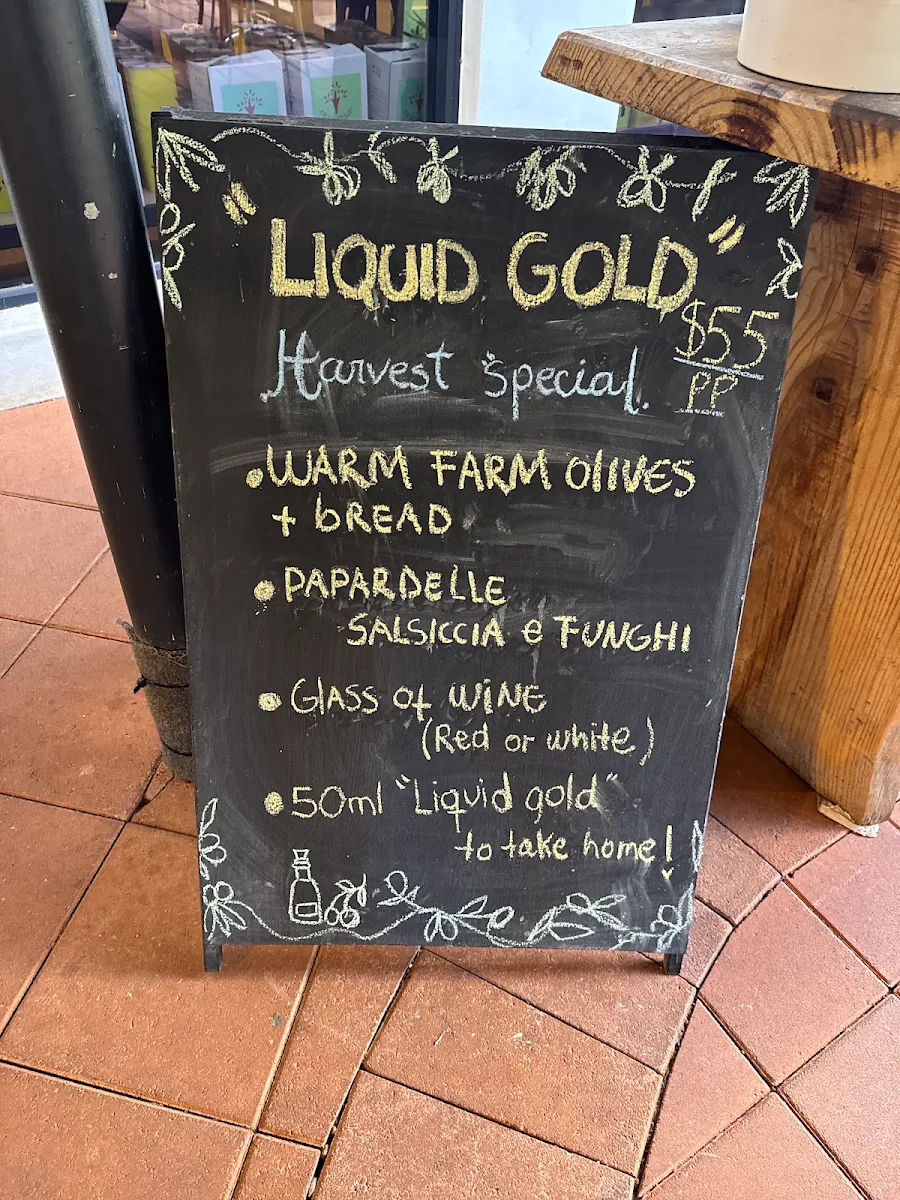 "LIQUID GOLD"
$55
PP
Harvest Special.
•WARM FARM OlIVES
+ bREAD
•PAPARDELLE
SALSICCIA e FUNGHI
•GlASS of WINE
(Red or white)
•50ml "Liquid gold"
to take home!